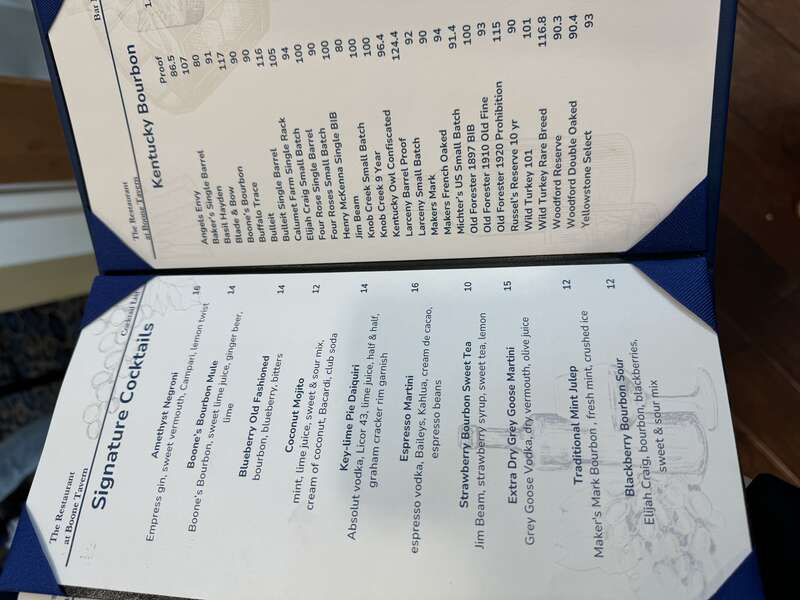 The Restaurant
at Boone Tavern
Cocktail List
Signature Cocktails
Amethyst Negroni 16
Empress gin, sweet vermouth, Campari, lemon twist
Boone's Bourbon Mule 14
Boone's Bourbon, sweet lime juice, ginger beer,
lime
Blueberry Old Fashioned 14
bourbon, blueberry, bitters
Coconut Mojito 12
mint, lime juice, sweet & sour mix,
cream of coconut, Bacardi, club soda
Key-lime Pie Daiquiri 14
Absolut vodka, Licor 43, lime juice, half & half,
graham cracker rim garnish
Espresso Martini 16
espresso vodka, Baileys, Kahlua, cream de cacao,
espresso beans
Strawberry Bourbon Sweet Tea 10
Jim Beam, strawberry syrup, sweet tea, lemon
Extra Dry Grey Goose Martini 15
Grey Goose Vodka, dry vermouth, olive juice
Traditional Mint Julep 12
Maker's Mark Bourbon , fresh mint, crushed ice
Blackberry Bourbon Sour 12
Elijah Craig, bourbon, blackberries,
sweet & sour mix
The Restaurant
at Boone Tavern
Bar
Kentucky Bourbon
Proof
Angels Envy 86.5
Baker's Single Barrel 107
Basil Hayden 80
Blade & Bow 91
Boone's Bourbon 117
Buffalo Trace 90
Bulleit 90
Bulleit Single Barrel 116
Calumet Farm Single Rack 105
Elijah Craig Small Batch 94
Four Rose Single Barrel 100
Four Roses Small Batch 90
Henry McKenna Single BIB 100
Jim Beam 80
Knob Creek Small Batch 100
Knob Creek 9 Year 100
Kentucky Owl Confiscated 96.4
Larceny Barrel Proof 124.4
Larceny Small Batch 92
Makers Mark 90
Makers French Oaked 94
Michter's US Small Batch 91.4
Old Forester 1897 BIB 100
Old Forester 1910 Old Fine 93
Old Forester 1920 Prohibition 115
Russel's Reserve 10 yr 90
Wild Turkey 101 101
Wild Turkey Rare Breed 116.8
Woodford Reserve 90.3
Woodford Double Oaked 90.4
Yellowstone Select 93